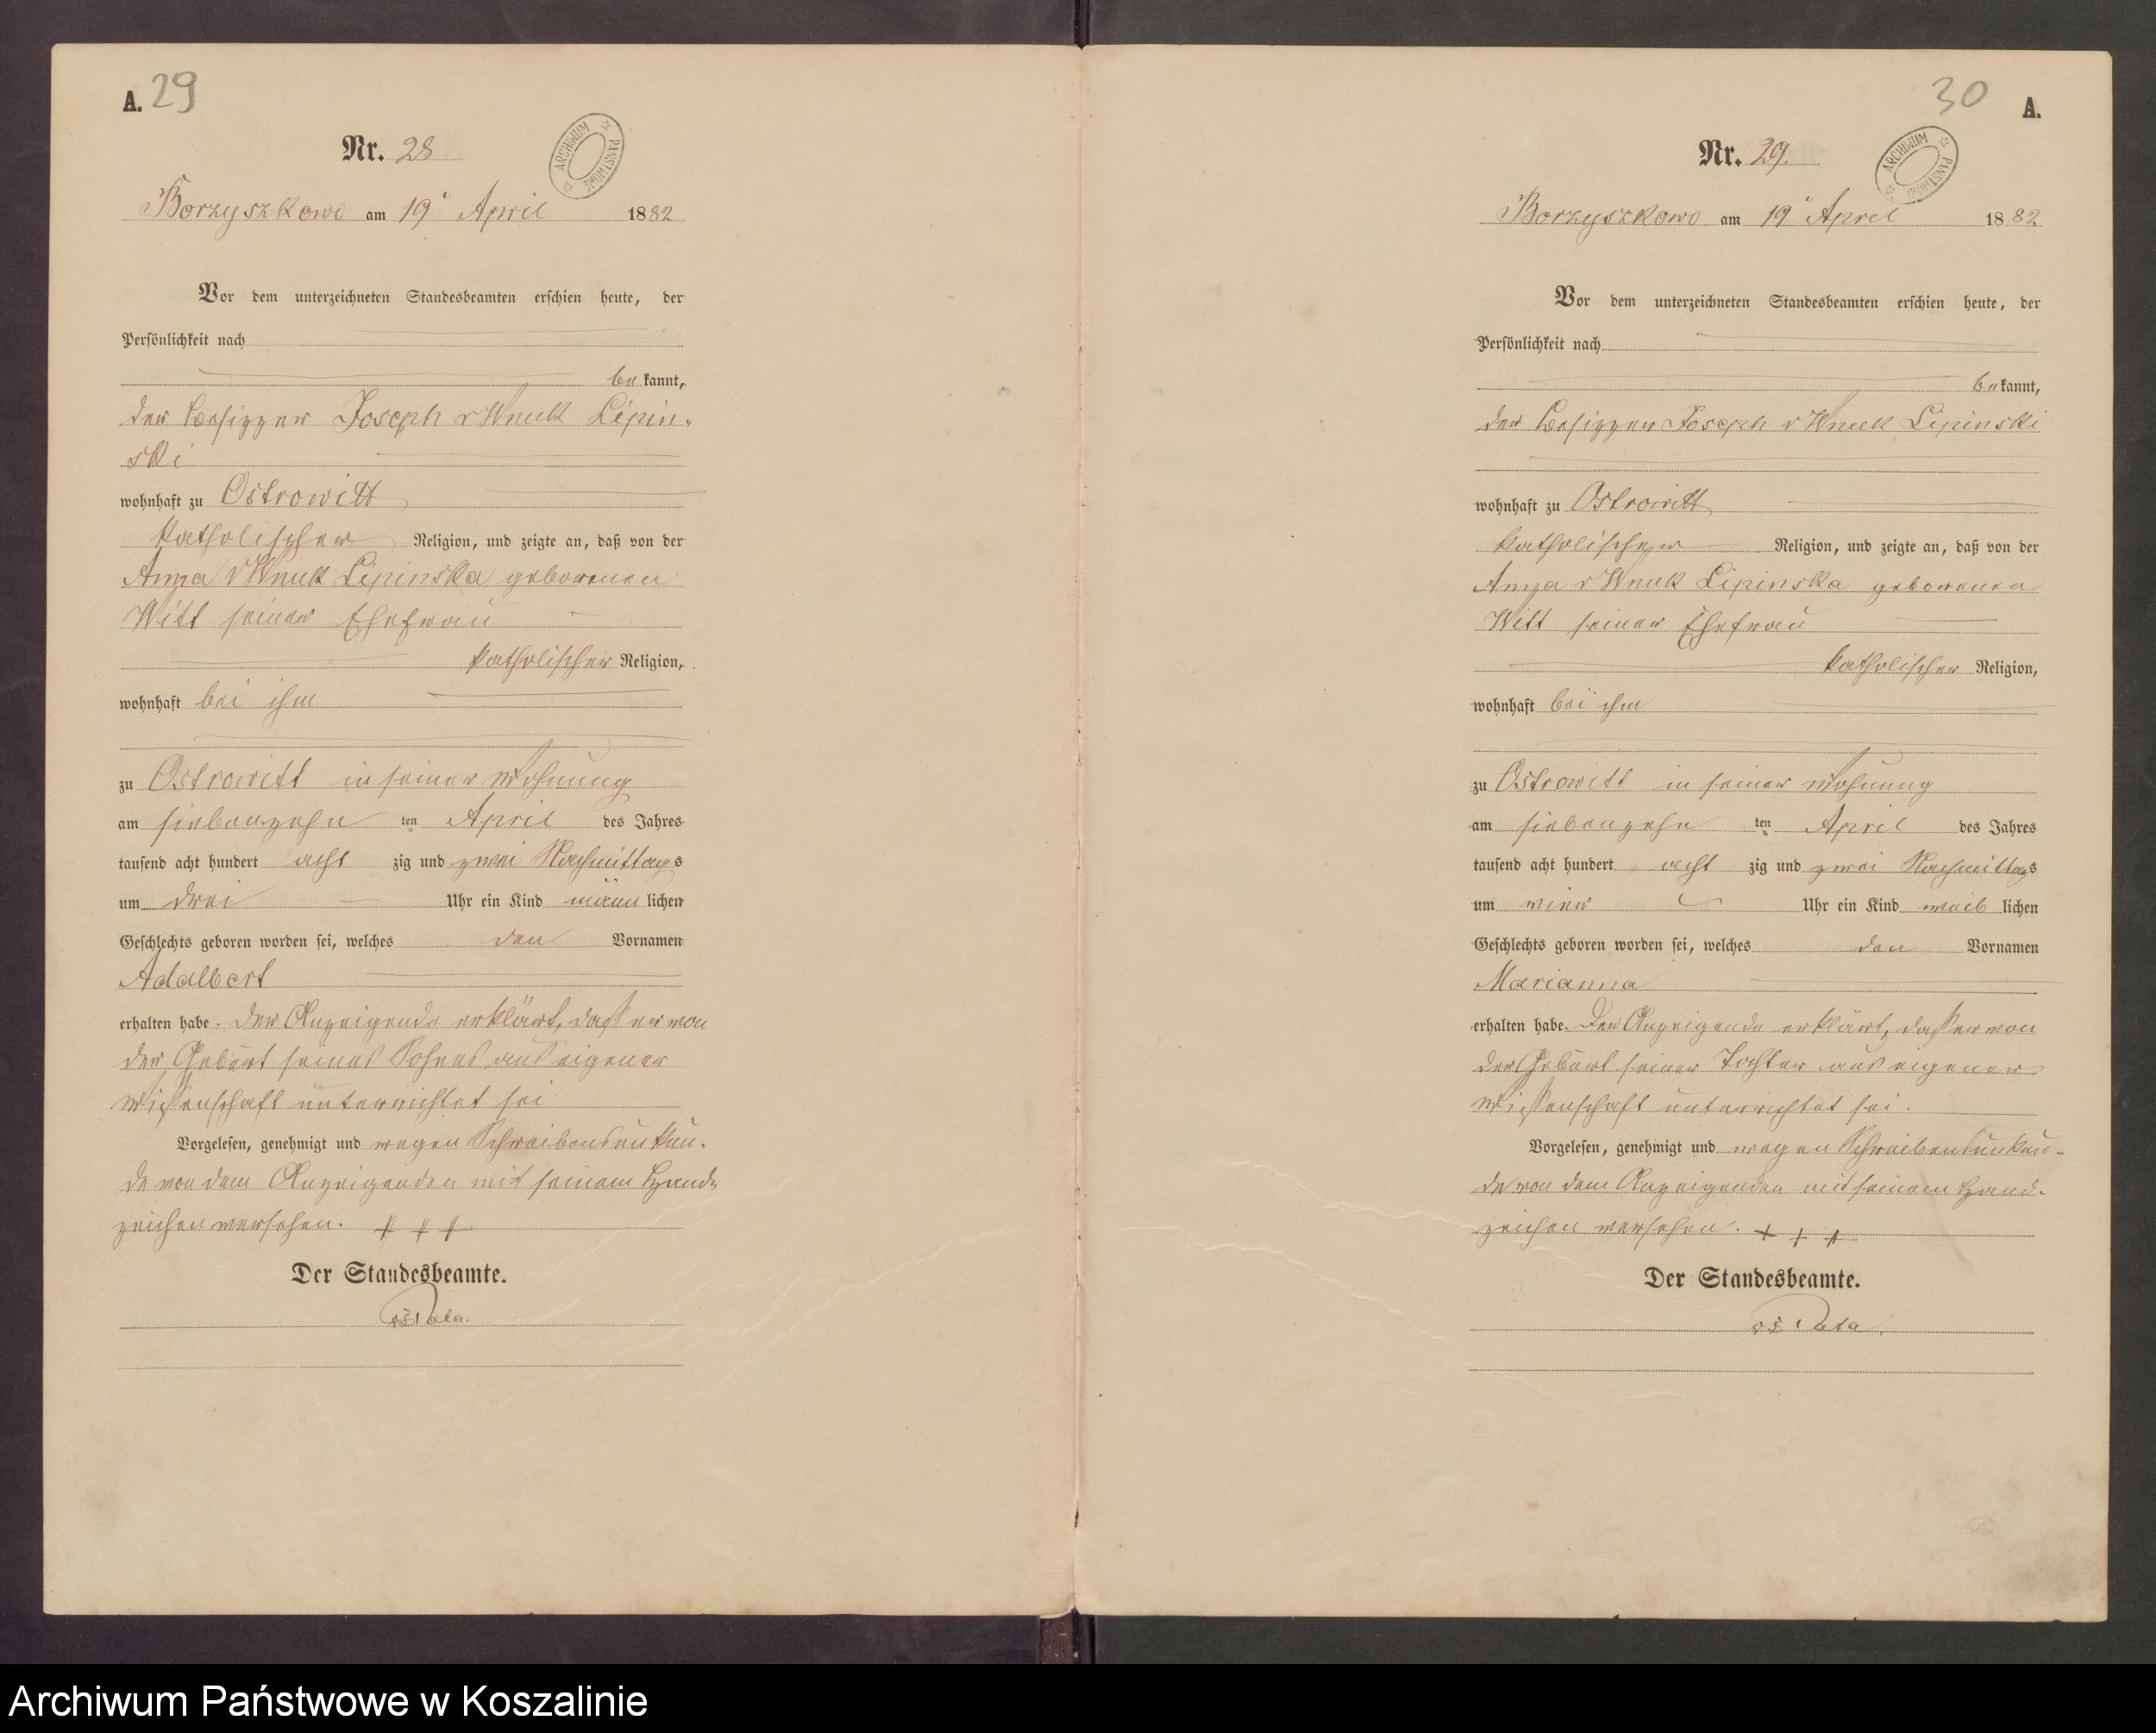 A. 29
Nr. 28
ARCHIWUM PAŃSTWOWE
Borzyszkowo am 19 April 1882
Vor dem unterzeichneten Standesbeamten erschien heute, der
Persönlichkeit nach
bekannt,
der Besitzer Joseph v Wnuk Lipin-
ski
wohnhaft zu Ostrowitt
katholischer Religion, und zeigte an, daß von der
Anna v Wnuk Lipinska geborenen
Witt seiner Ehefrau
katholischer Religion,
wohnhaft bei ihm
zu Ostrowitt in seiner Wohnung
am siebenzehn ten April des Jahres
tausend acht hundert acht zig und zwei Nachmittags
um drei Uhr ein Kind männlichen
Geschlechts geboren worden sei, welches den Vornamen
Adalbert
erhalten habe. Der Anzeigende erklärt, daß er von
der Geburt seines Sohnes aus eigener
Wissenschaft unterrichtet sei
Vorgelesen, genehmigt und wegen Schreibensunkun-
de von dem Anzeigenden mit seinem Hand-
zeichen versehen. + + +
Der Standesbeamte.
30 A.
Nr. 29.
ARCHIWUM PAŃSTWOWE
Borzyszkowo am 19 April 1882
Vor dem unterzeichneten Standesbeamten erschien heute, der
Persönlichkeit nach
bekannt,
der Besitzer Joseph v Wnuk Lipinski
wohnhaft zu Ostrowitt
katholischer Religion, und zeigte an, daß von der
Anna v Wnuk Lipinska geborenen
Witt seiner Ehefrau
katholischer Religion,
wohnhaft bei ihm
zu Ostrowitt in seiner Wohnung
am siebenzehn ten April des Jahres
tausend acht hundert acht zig und zwei Nachmittags
um vier Uhr ein Kind weiblichen
Geschlechts geboren worden sei, welches den Vornamen
Marianna
erhalten habe. Der Anzeigende erklärt, daß er von
der Geburt seiner Tochter aus eigener
Wissenschaft unterrichtet sei.
Vorgelesen, genehmigt und wegen Schreibensunkun-
de von dem Anzeigenden mit seinem Hand-
zeichen versehen. + + +
Der Standesbeamte.
Archiwum Państwowe w Koszalinie